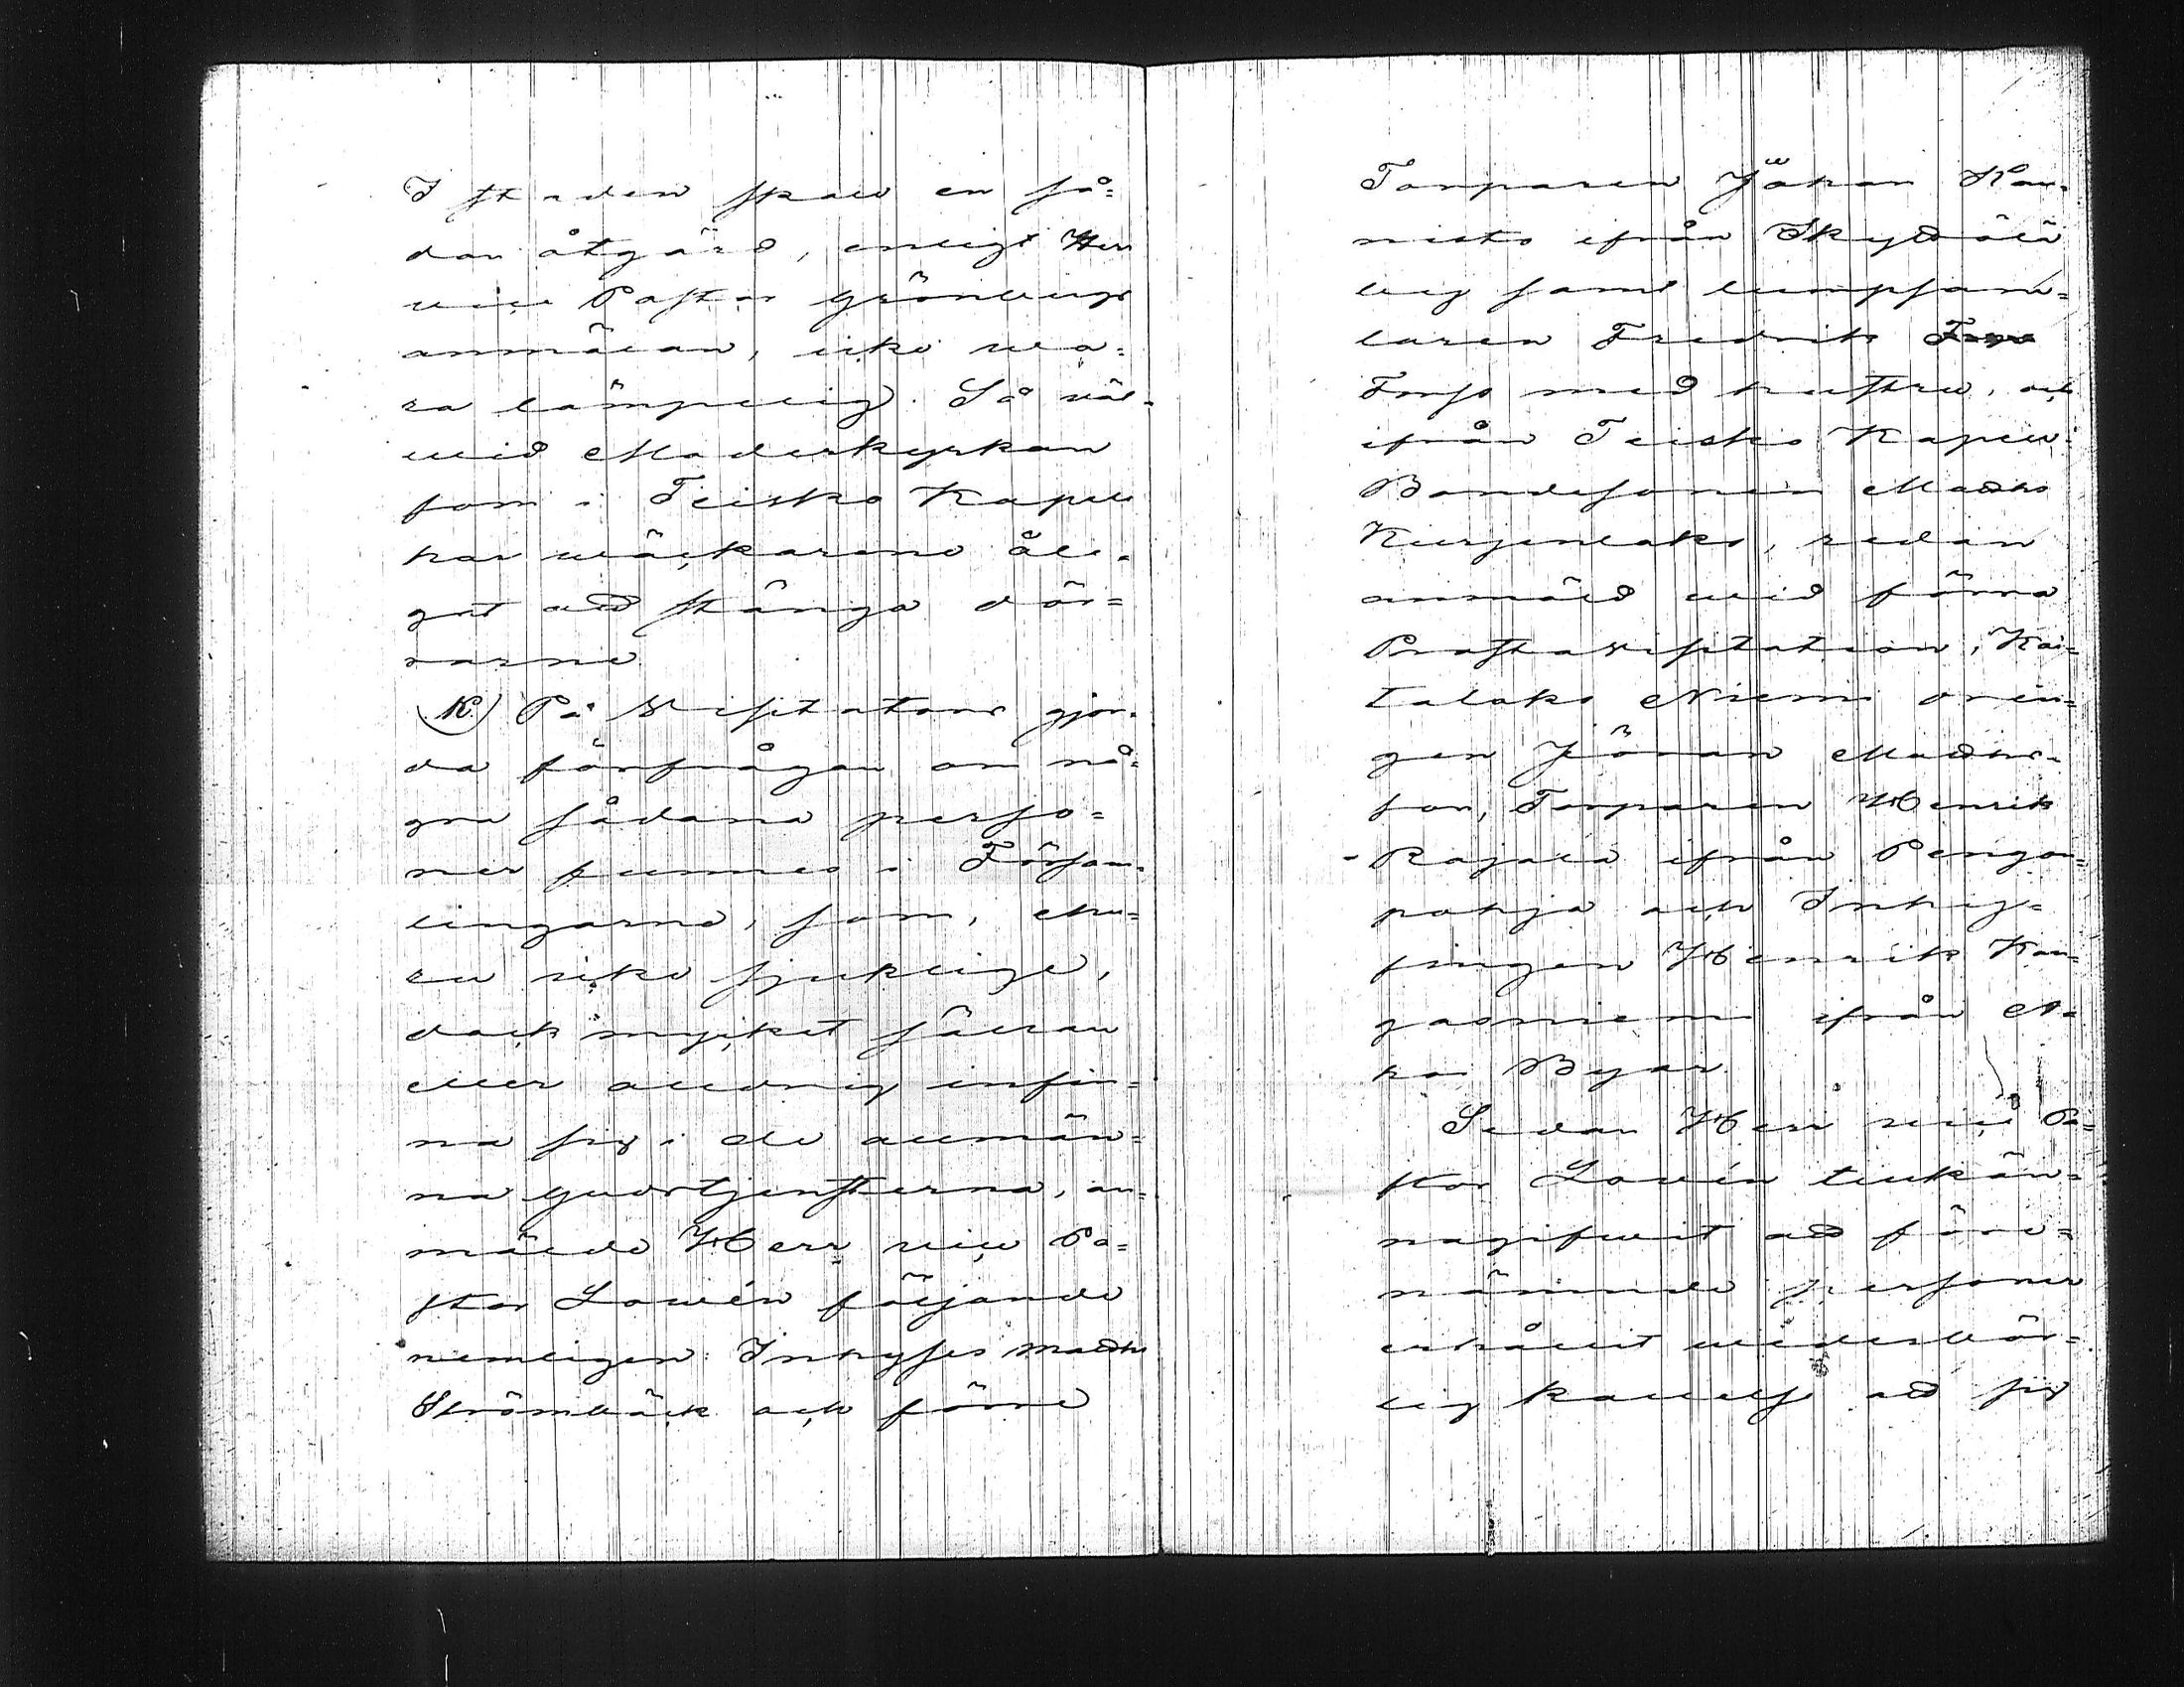 I staden skall en så=
dan åtgärd, enligt Herr
vice Pastor Grönbergs
anmälan, icke wa=
ra lämpelig. Så väl
wid Moderkyrkan
som i Teisko Kapell
har wäckarene åle=
gat att stänga dör=
rarne
K) På Visitators gjor=
da förfrågan om nå=
gre sådana perso=
ner funnes i Försam=
lingarne, som, ehu=
ru icke sjuklige,
dock mycket sällan
eller aldrig infin=
na sig i de allmän=
na Gudstjensterna, an=
mälde Herr vice Pa=
stor Lowén följande
nemligen: Inhyses Matts
Strömbäck och förre
Torparen Johan Kau=
nisto ifrån Skyttälä
by samt lumpsam=
laren Fredrik
Fors med hustru, och
ifrån Teisko Kapell:
Bondesonen Matts
Kurjenlaks, redan
anmäld wid förra
Prostavisitation, Kai=
talaks Niemi dren=
gen Jöran Matts=
son, Torparen Henrik
Rajala ifrån Pengon=
pohja och Inhy=
singen Henrik Kan=
gasniemi ifrån A=
ho Byar.
Sedan Herr vice Pa=
stor Lowén tillkän=
nagifwit att före=
nämnde personer
erhållit wederbör=
lig kallelse att sig